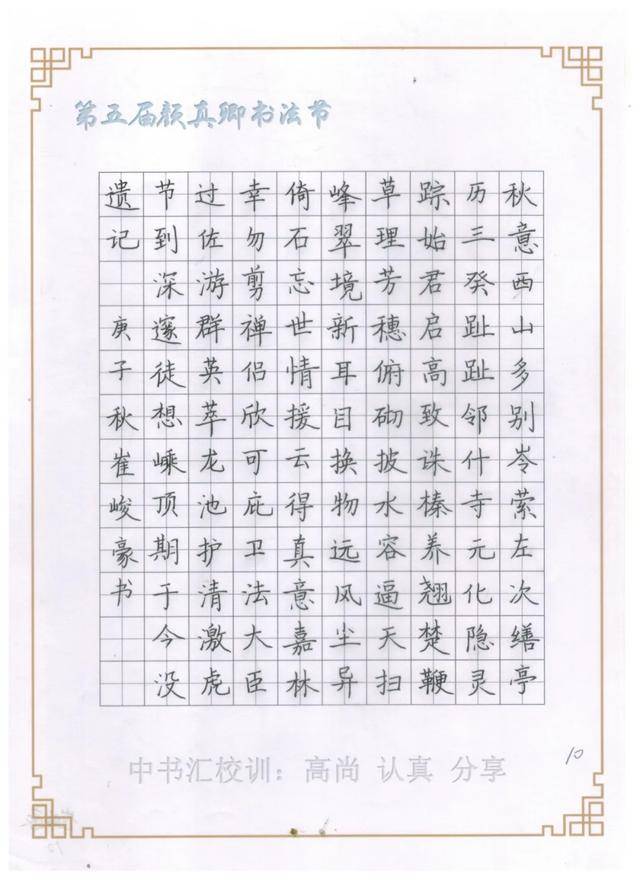 第五届颜真卿书法节
秋意西山多别岑萦左次缮亭
历三癸趾趾邻什寺元化隐灵
踪始君启高致诛榛养翘楚鞭
草理芳穗俯砌披水容逼天扫
峰翠境新耳目换物远风尘异
倚石忘世情援云得真意嘉林
幸勿剪禅侣欣可庇卫法大臣
过佐游群英萃龙池护清激虎
节到深邃徒想嵊顶期于今没
遗记 庚子秋崔峻豪书
中书汇校训：高尚 认真 分享
10